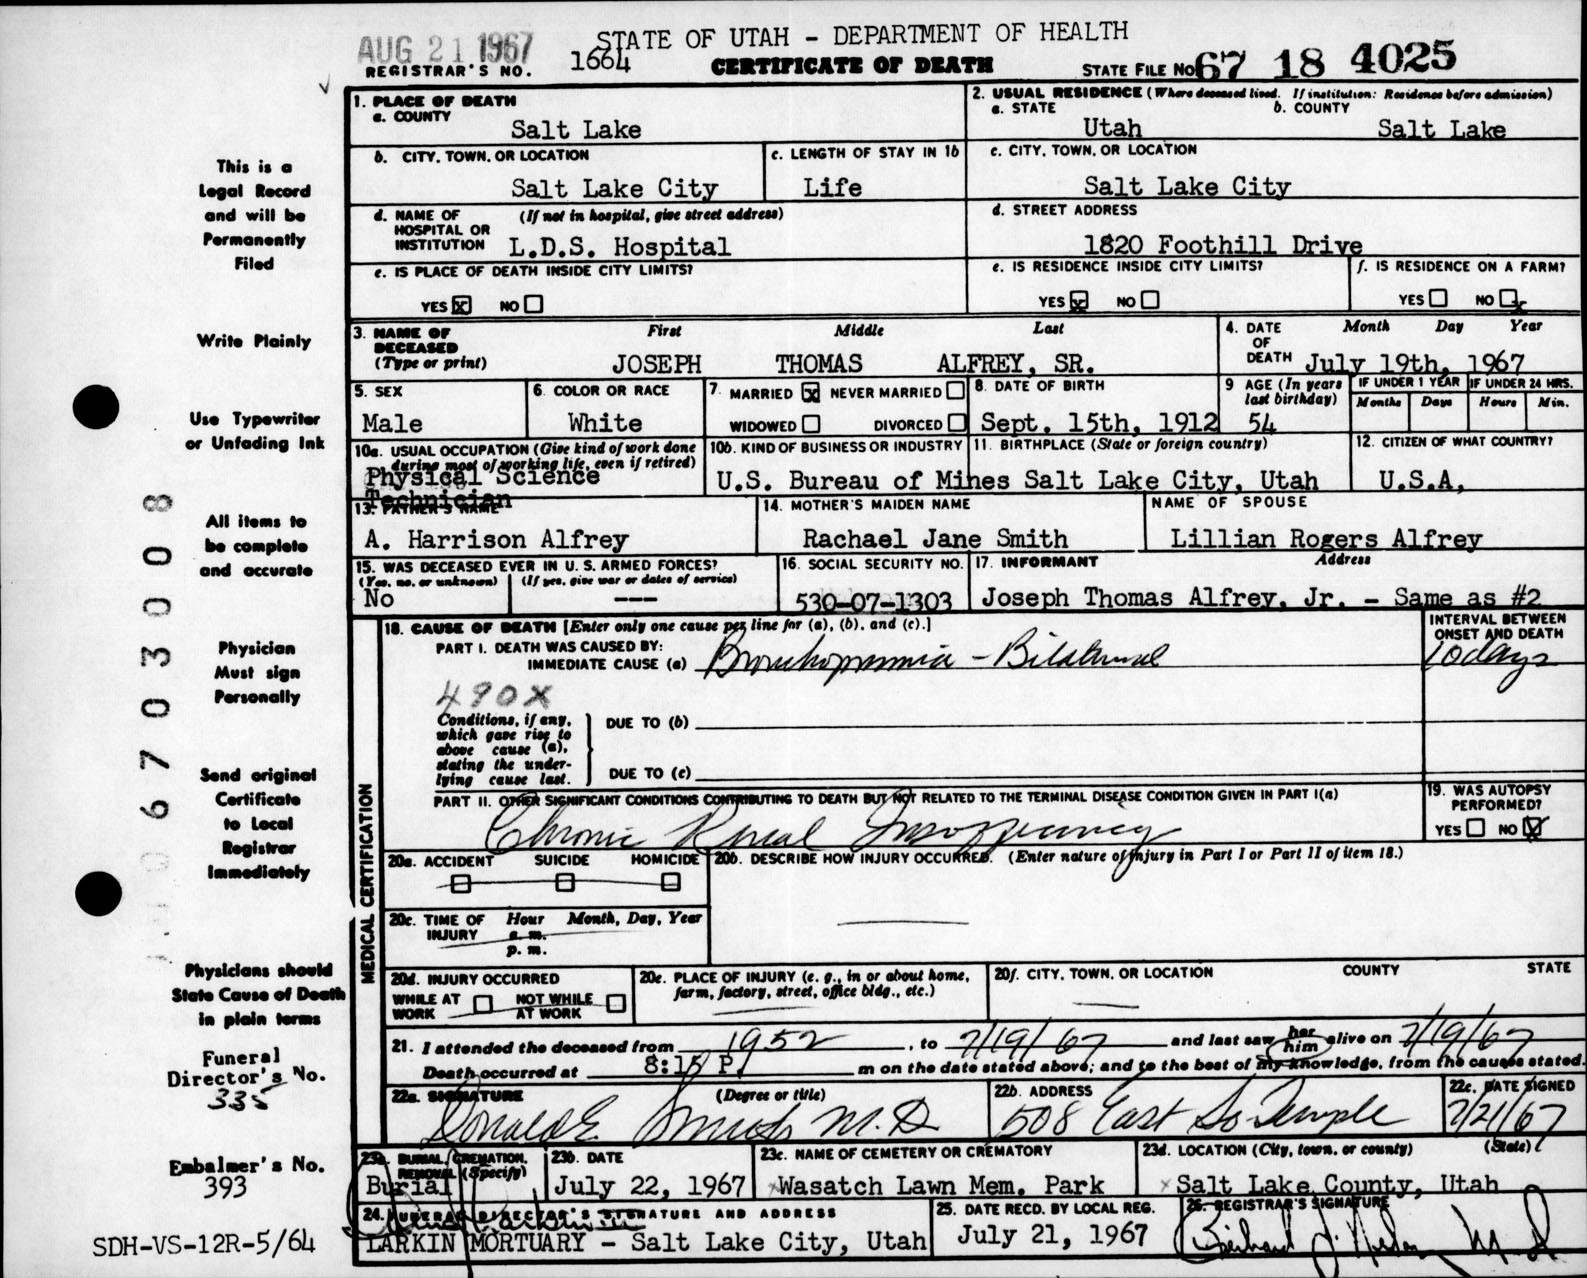 AUG 21 1967
STATE OF UTAH - DEPARTMENT OF HEALTH
REGISTRAR'S NO. 1664
CERTIFICATE OF DEATH
STATE FILE NO. 67 18 4025
This is a
Legal Record
and will be
Permanently
Filed
Write Plainly
Use Typewriter
or Unfading Ink
All items to
be complete
and accurate
Physician
Must sign
Personally
Send original
Certificate
to Local
Registrar
Immediately
Physicians should
State Cause of Death
in plain terms
Funeral
Director's No.
335
Embalmer's No.
393
SDH-VS-12R-5/64
0 6 7 0 3 0 0 8
1. PLACE OF DEATH
a. COUNTY
Salt Lake
2. USUAL RESIDENCE (Where deceased lived. If institution: Residence before admission)
a. STATE b. COUNTY
Utah Salt Lake
b. CITY, TOWN, OR LOCATION
Salt Lake City
c. LENGTH OF STAY IN 1b
Life
c. CITY, TOWN, OR LOCATION
Salt Lake City
d. NAME OF HOSPITAL OR INSTITUTION (If not in hospital, give street address)
L.D.S. Hospital
d. STREET ADDRESS
1820 Foothill Drive
e. IS PLACE OF DEATH INSIDE CITY LIMITS?
YES X NO
e. IS RESIDENCE INSIDE CITY LIMITS?
YES X NO
f. IS RESIDENCE ON A FARM?
YES NO X
3. NAME OF DECEASED (Type or print)
First Middle Last
JOSEPH THOMAS ALFREY, SR.
4. DATE OF DEATH Month Day Year
July 19th, 1967
5. SEX
Male
6. COLOR OR RACE
White
7. MARRIED X NEVER MARRIED
WIDOWED DIVORCED
8. DATE OF BIRTH
Sept. 15th, 1912
9 AGE (In years last birthday)
54
IF UNDER 1 YEAR IF UNDER 24 HRS.
Months Days Hours Min.
10a. USUAL OCCUPATION (Give kind of work done
during most of working life, even if retired)
Physical Science
Technician
10b. KIND OF BUSINESS OR INDUSTRY
U.S. Bureau of Mines
11. BIRTHPLACE (State or foreign country)
Salt Lake City, Utah
12. CITIZEN OF WHAT COUNTRY?
U.S.A.
13. FATHER'S NAME
A. Harrison Alfrey
14. MOTHER'S MAIDEN NAME
Rachael Jane Smith
NAME OF SPOUSE
Lillian Rogers Alfrey
15. WAS DECEASED EVER IN U. S. ARMED FORCES?
(Yes, no, or unknown) (If yes, give war or dates of service)
No ---
16. SOCIAL SECURITY NO.
530-07-1303
17. INFORMANT Address
Joseph Thomas Alfrey, Jr. - Same as #2
MEDICAL CERTIFICATION
18. CAUSE OF DEATH [Enter only one cause per line for (a), (b), and (c).]
INTERVAL BETWEEN ONSET AND DEATH
PART I. DEATH WAS CAUSED BY:
IMMEDIATE CAUSE (a) Bronchopneumonia - Bilateral
10 days
490X
Conditions, if any,
which gave rise to
above cause (a),
stating the under-
lying cause last.
DUE TO (b)
DUE TO (c)
PART II. OTHER SIGNIFICANT CONDITIONS CONTRIBUTING TO DEATH BUT NOT RELATED TO THE TERMINAL DISEASE CONDITION GIVEN IN PART I(a)
Chronic Renal Insufficiency
19. WAS AUTOPSY PERFORMED?
YES NO X
20a. ACCIDENT SUICIDE HOMICIDE
20b. DESCRIBE HOW INJURY OCCURRED. (Enter nature of injury in Part I or Part II of item 18.)
20c. TIME OF INJURY Hour Month, Day, Year
a. m.
p. m.
20d. INJURY OCCURRED
WHILE AT WORK NOT WHILE AT WORK
20e. PLACE OF INJURY (e. g., in or about home,
farm, factory, street, office bldg., etc.)
20f. CITY, TOWN, OR LOCATION COUNTY STATE
21. I attended the deceased from 1952, to 7/19/67 and last saw her him alive on 7/19/67
Death occurred at 8:15 P. m on the date stated above; and to the best of my knowledge, from the causes stated.
22a. SIGNATURE (Degree or title)
Donald E. Smith M.D.
22b. ADDRESS
508 East So Temple
22c. DATE SIGNED
7/21/67
23a. BURIAL, CREMATION, REMOVAL (Specify)
Burial
23b. DATE
July 22, 1967
23c. NAME OF CEMETERY OR CREMATORY
Wasatch Lawn Mem. Park
23d. LOCATION (City, town, or county) (State)
Salt Lake County, Utah
24. FUNERAL DIRECTOR'S SIGNATURE AND ADDRESS
LARKIN MORTUARY - Salt Lake City, Utah
25. DATE RECD. BY LOCAL REG.
July 21, 1967
26. REGISTRAR'S SIGNATURE